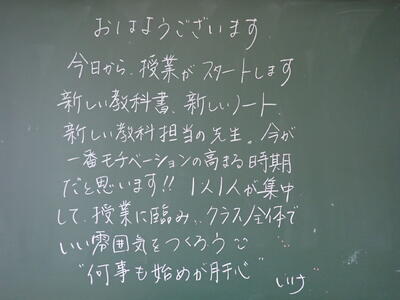 おはようございます
今日から、授業がスタートします
新しい教科書、新しいノート、
新しい教科担当の先生。今が
一番モチベーションの高まる時期
だと思います!! 1人1人が集中
して、授業に臨み、クラス全体で
いい雰囲気をつくろう
"何事も始めが肝心"